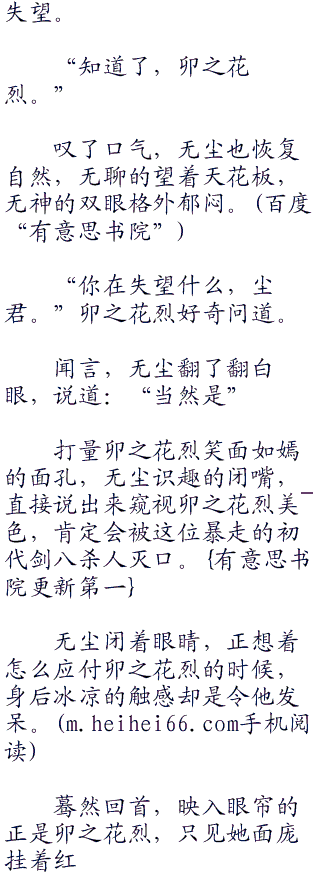 失望。
“知道了，卯之花
烈。”
叹了口气，无尘也恢复
自然，无聊的望着天花板，
无神的双眼格外郁闷。(百度
“有意思书院”)
“你在失望什么，尘
君。”卯之花烈好奇问道。
闻言，无尘翻了翻白
眼，说道：“当然是”
打量卯之花烈笑面如嫣
的面孔，无尘识趣的闭嘴，
直接说出来窥视卯之花烈美
色，肯定会被这位暴走的初
代剑八杀人灭口。{有意思书
院更新第一}
无尘闭着眼睛，正想着
怎么应付卯之花烈的时候，
身后冰凉的触感却是令他发
呆。(m.heihei66.com手机阅
读)
蓦然回首，映入眼帘的
正是卯之花烈，只见她面庞
挂着红